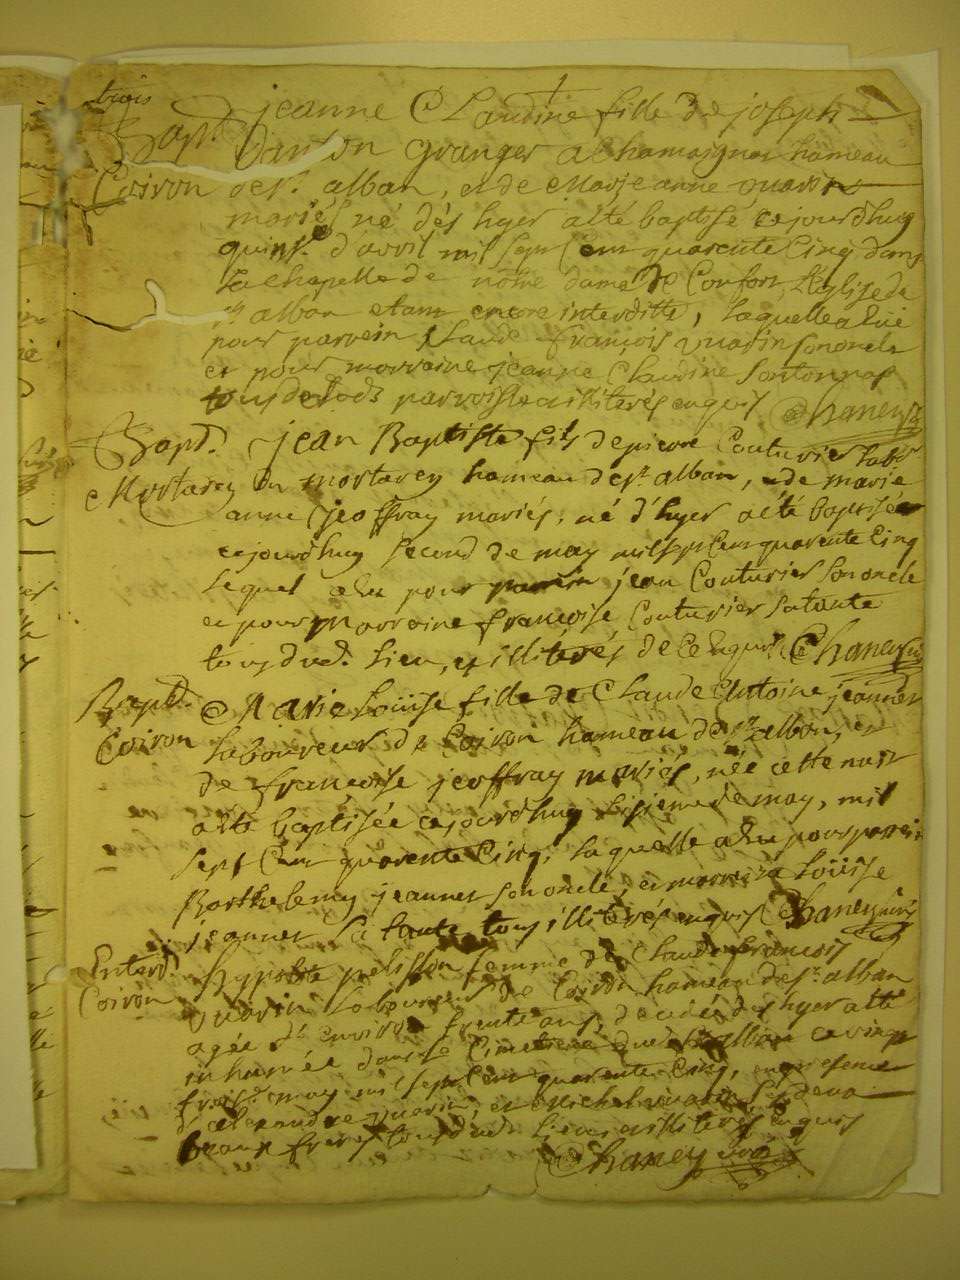 trois
Bapt. jeanne Claudine fille de joseph
granger a Chamoignon hameau
Coiron de st. alban, et de Marjeanne quarin
mariés né dés hyer a été baptisé cejourdhuy
quinse d'avril mil sept Cent quarente Cinq dans
La chapelle de nôtre dame de Confort, L'église de
st. alban etant encore interditte, Laquelle a eüe
pour parrein Claude françois quarin son oncle
et pour marraine jeanne Claudine
tous de lad. parroisse illiterés enquis Chaney
Bapt. jean Baptiste fils de pierre Couturier Labr.
Mortarey du mortarey hameau de st. alban, et de marie
anne jeoffray mariés, né d'hyer a été baptisé
cejourdhuy second de may mil sept Cent quarente Cinq
Lequel a eu pour parrein jean Couturier son oncle
et pour marraine françoise Couturier sa tante
tous dud. Lieu, et illiterés de ce enquis Chaney
Bapt. Marie Loüise fille de Claude Antoine jeanner
Coiron Laboureur de Coiron hameau de st. alban, et
de françoise jeoffray mariés, née cette nuit
a été baptisée cejourdhuy sisieme de may, mil
sept Cent quarente Cinq, Laquelle a eu pour parrein
Barthelemy jeanner son oncle, et marraine Loüise
jeanner sa tante tous illiterés enquis Chaney
Enterr. pelisson femme de Claude François
Coiron quarin Laboureur de Coiron hameau de st. alban
agée d'environ trente ans, decedée dés hyer a été
inhumée dans le Cimetiere dud. st. alban ce vingt
trois may mil sept Cent quarente Cinq, en presence
d'alexandre quarin, et Michel quarin ses deux
beaux freres tous dud. Lieu illiterés enquis
Chaney